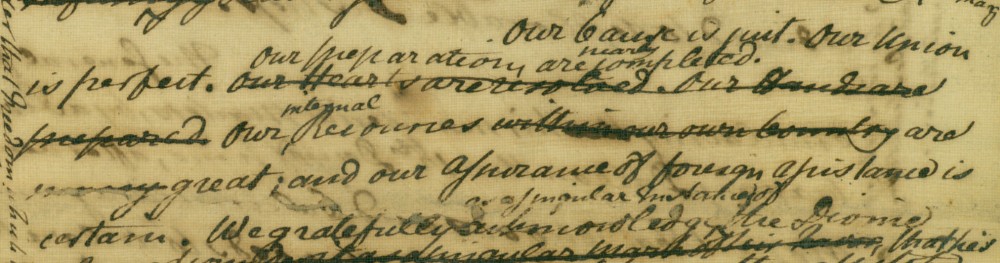 Our Cause is just. Our Union
Our preparations are nearly completed.
is perfect. Our Hearts are resolved. Our Hands are
internal
prepared. Our Resources within our own Country are
great; and our Assurance of foreign Assistance is
as a singular Instance of
certain. We gratefully acknowledge, the Divine
that his